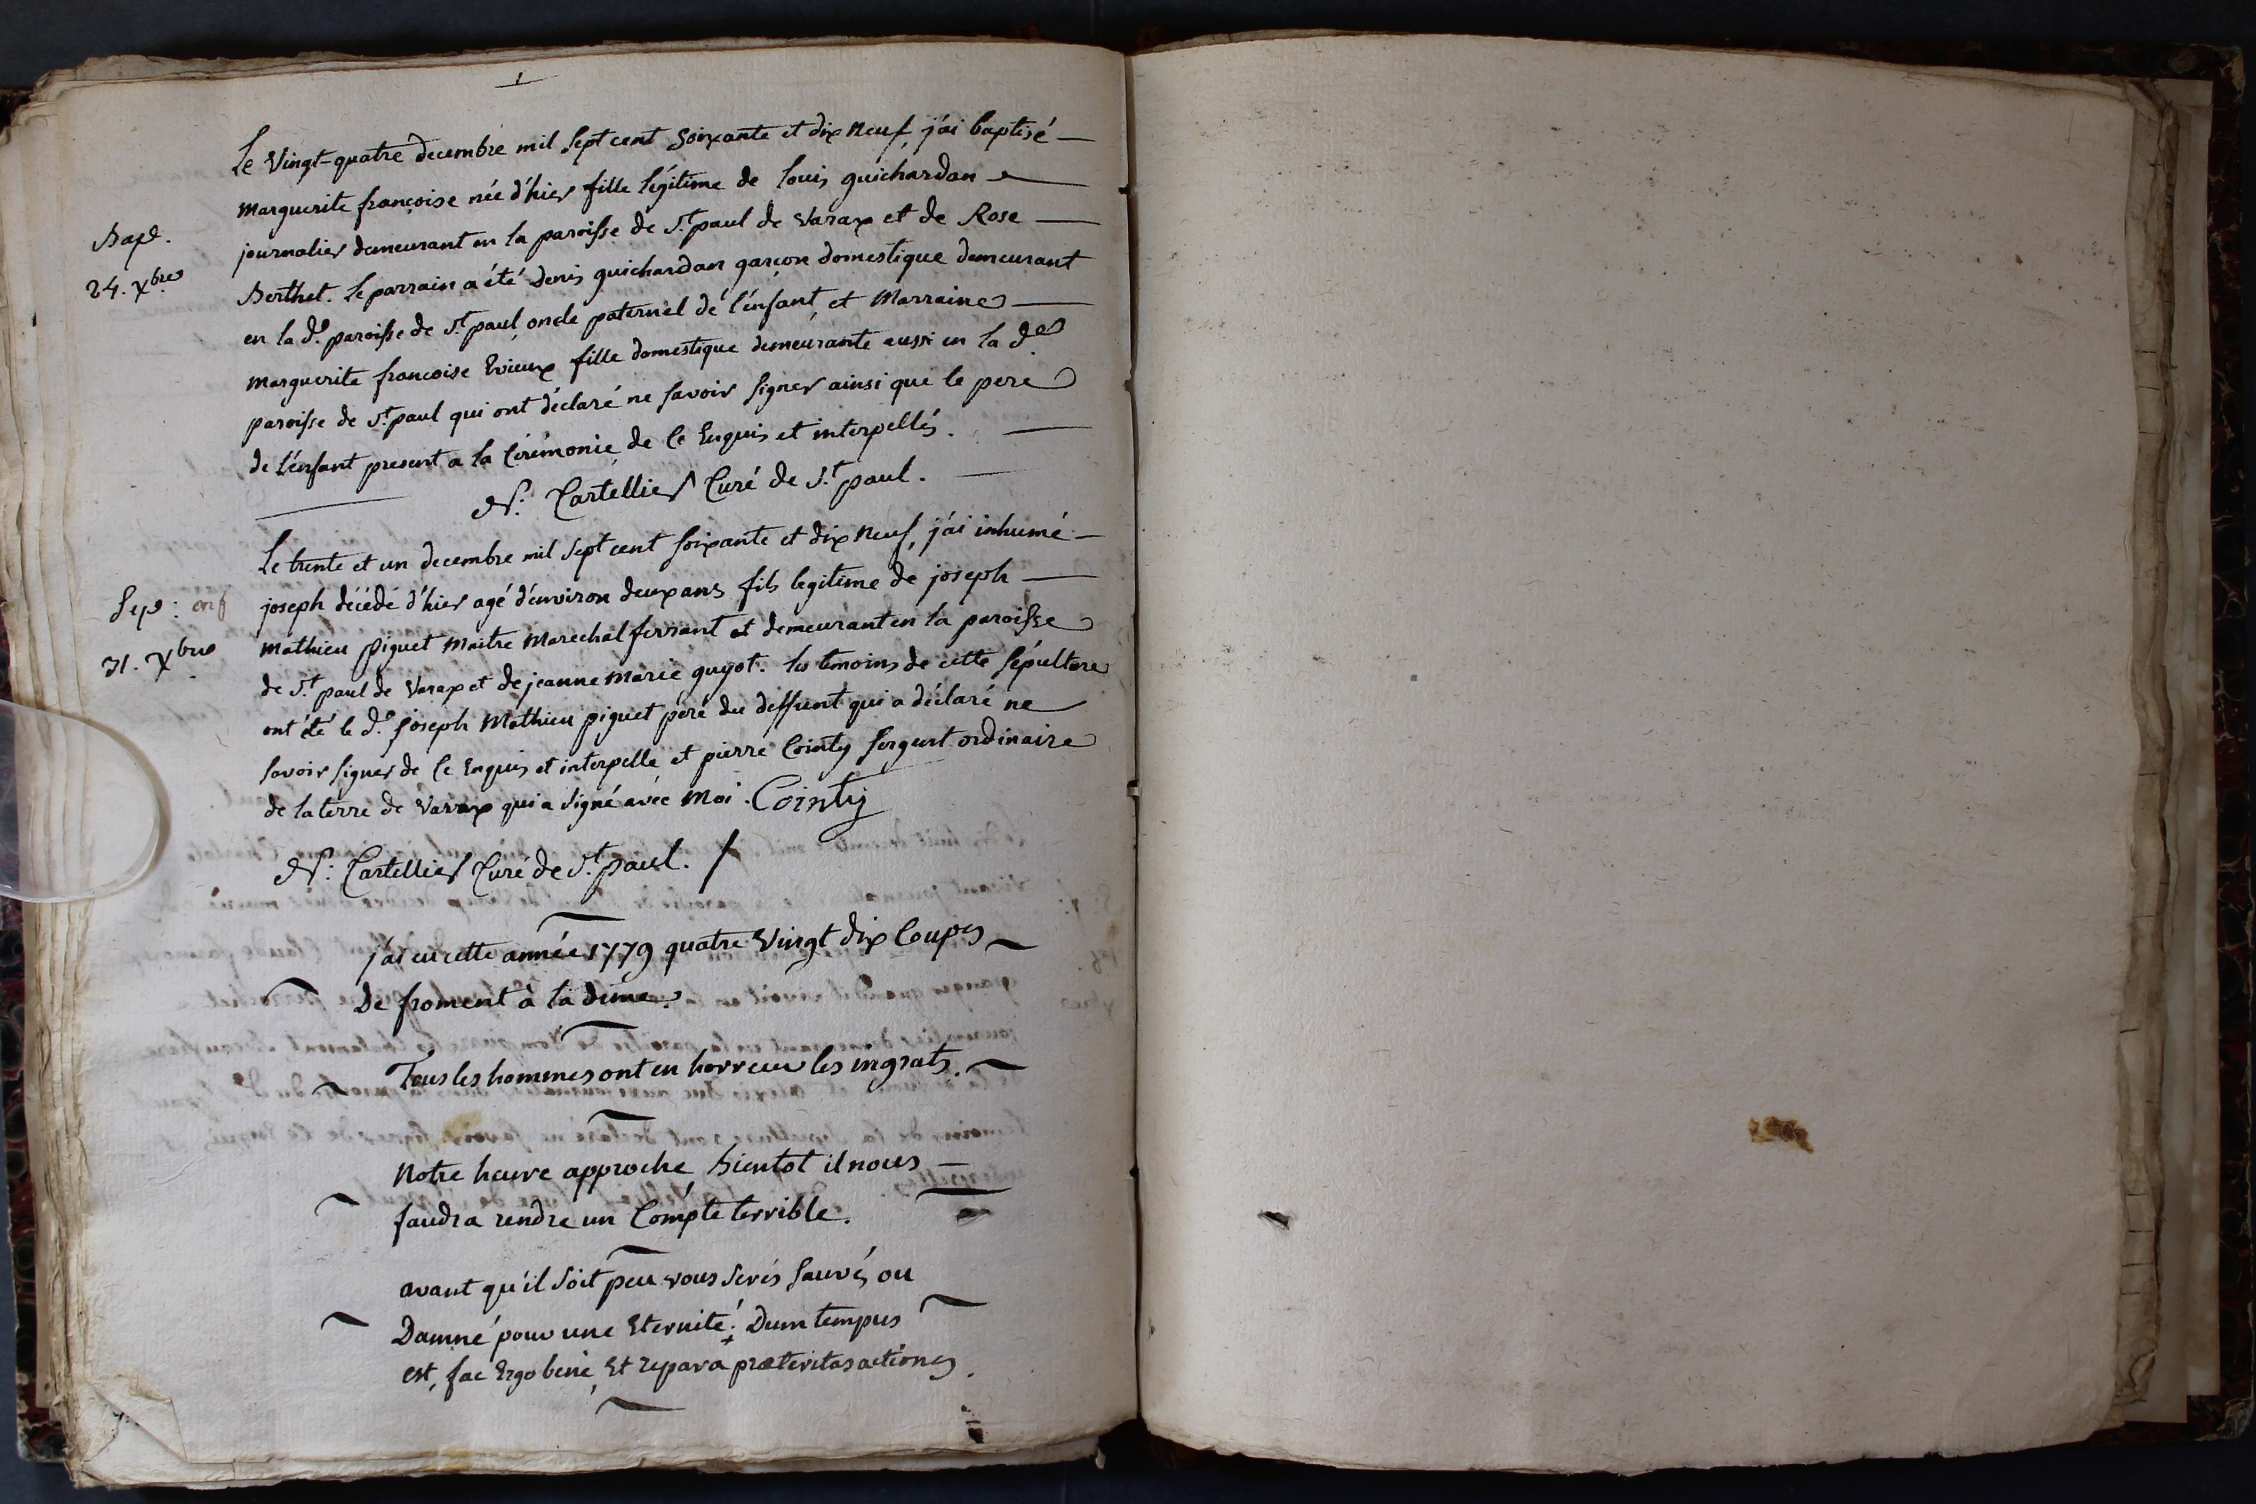 Le Vingt-quatre decembre mil Sept cent Soixante et dix neuf, j'ai baptisé
Marguerite françoise née d'hier fille légitime de Louis guichardan
Bapt.
journalier demeurant en la paroisse de St. paul de Varax et de Rose
24. Xbre
Berthet. Le parrain a été denis guichardan garçon domestique demeurant
en la de. paroisse de St. paul, oncle paternel de l'enfant, et Marraine
Marguerite francoise Evieux fille domestique demeurante aussi en la de.
paroisse de St. paul qui ont déclaré ne savoir signer ainsi que le pere
de l'enfant present a la Cérémonie, de Ce Enquis et interpellés.
N. Cartellier Curé de St. paul.
Le trente et un decembre mil Sept cent soixante et dix neuf, j'ai inhumé
Sep: enf
joseph décédé d'hier agé d'environ deux ans fils legitime de joseph
31. Xbre
Mathieu piguet Maitre Marechal ferrant et demeurant en la paroisse
de St. paul de Varax et de jeanne Marie guyot. les temoins de cette Sépulture
ont été le d. joseph Mathieu piguet père du deffunt qui a déclaré ne
savoir signer de Ce Enquis et interpellé et pierre Cointy sergent ordinaire
de la terre de Varax qui a signé avec Moi. Cointy
N. Cartellier Curé de St. paul.
j'ai eu cette année 1779 quatre Vingt dix Coupes
De froment à la dime.
Tous les hommes ont en horreur les ingrats.
Notre heure approche bientot il nous
faudra rendre un Compte terrible.
avant qu'il soit peu vous serés sauvés ou
Damné pour une Eternité: Dum tempus
est, fac Ergo bene, Et repara præteritas actiones.